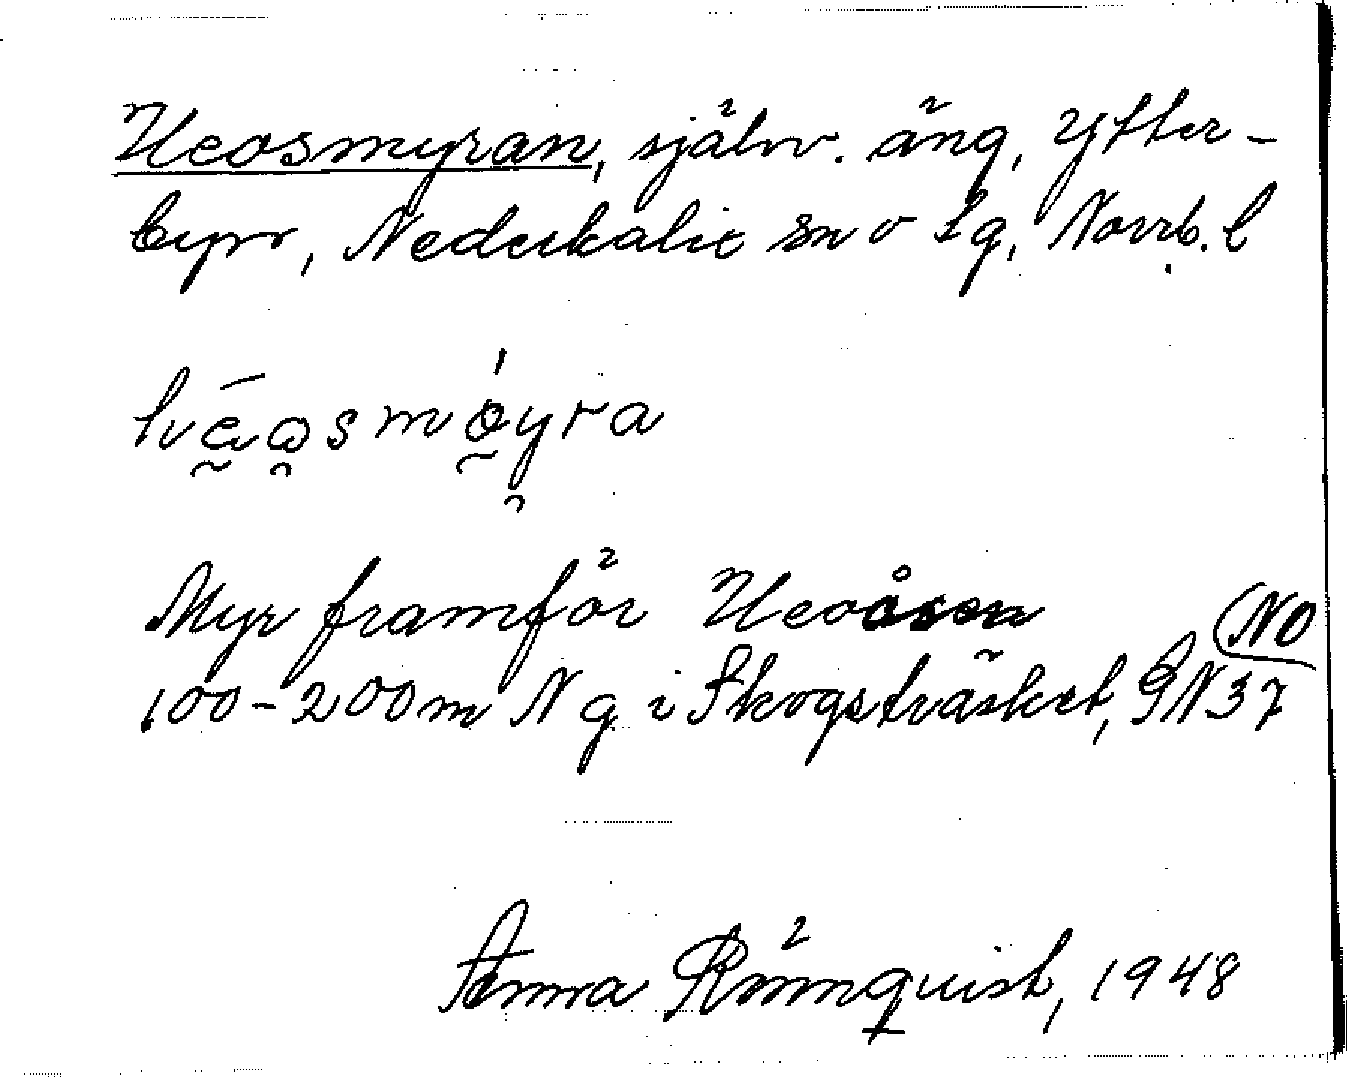 Heosmyran, självv. äng, Ytter-
byn, Nederkalix sn o tg, Norrb. l
Myr framför Heoåsen
NO
100-200m N g i Skogsträsket, GN37
Anna Rönnquist, 1948